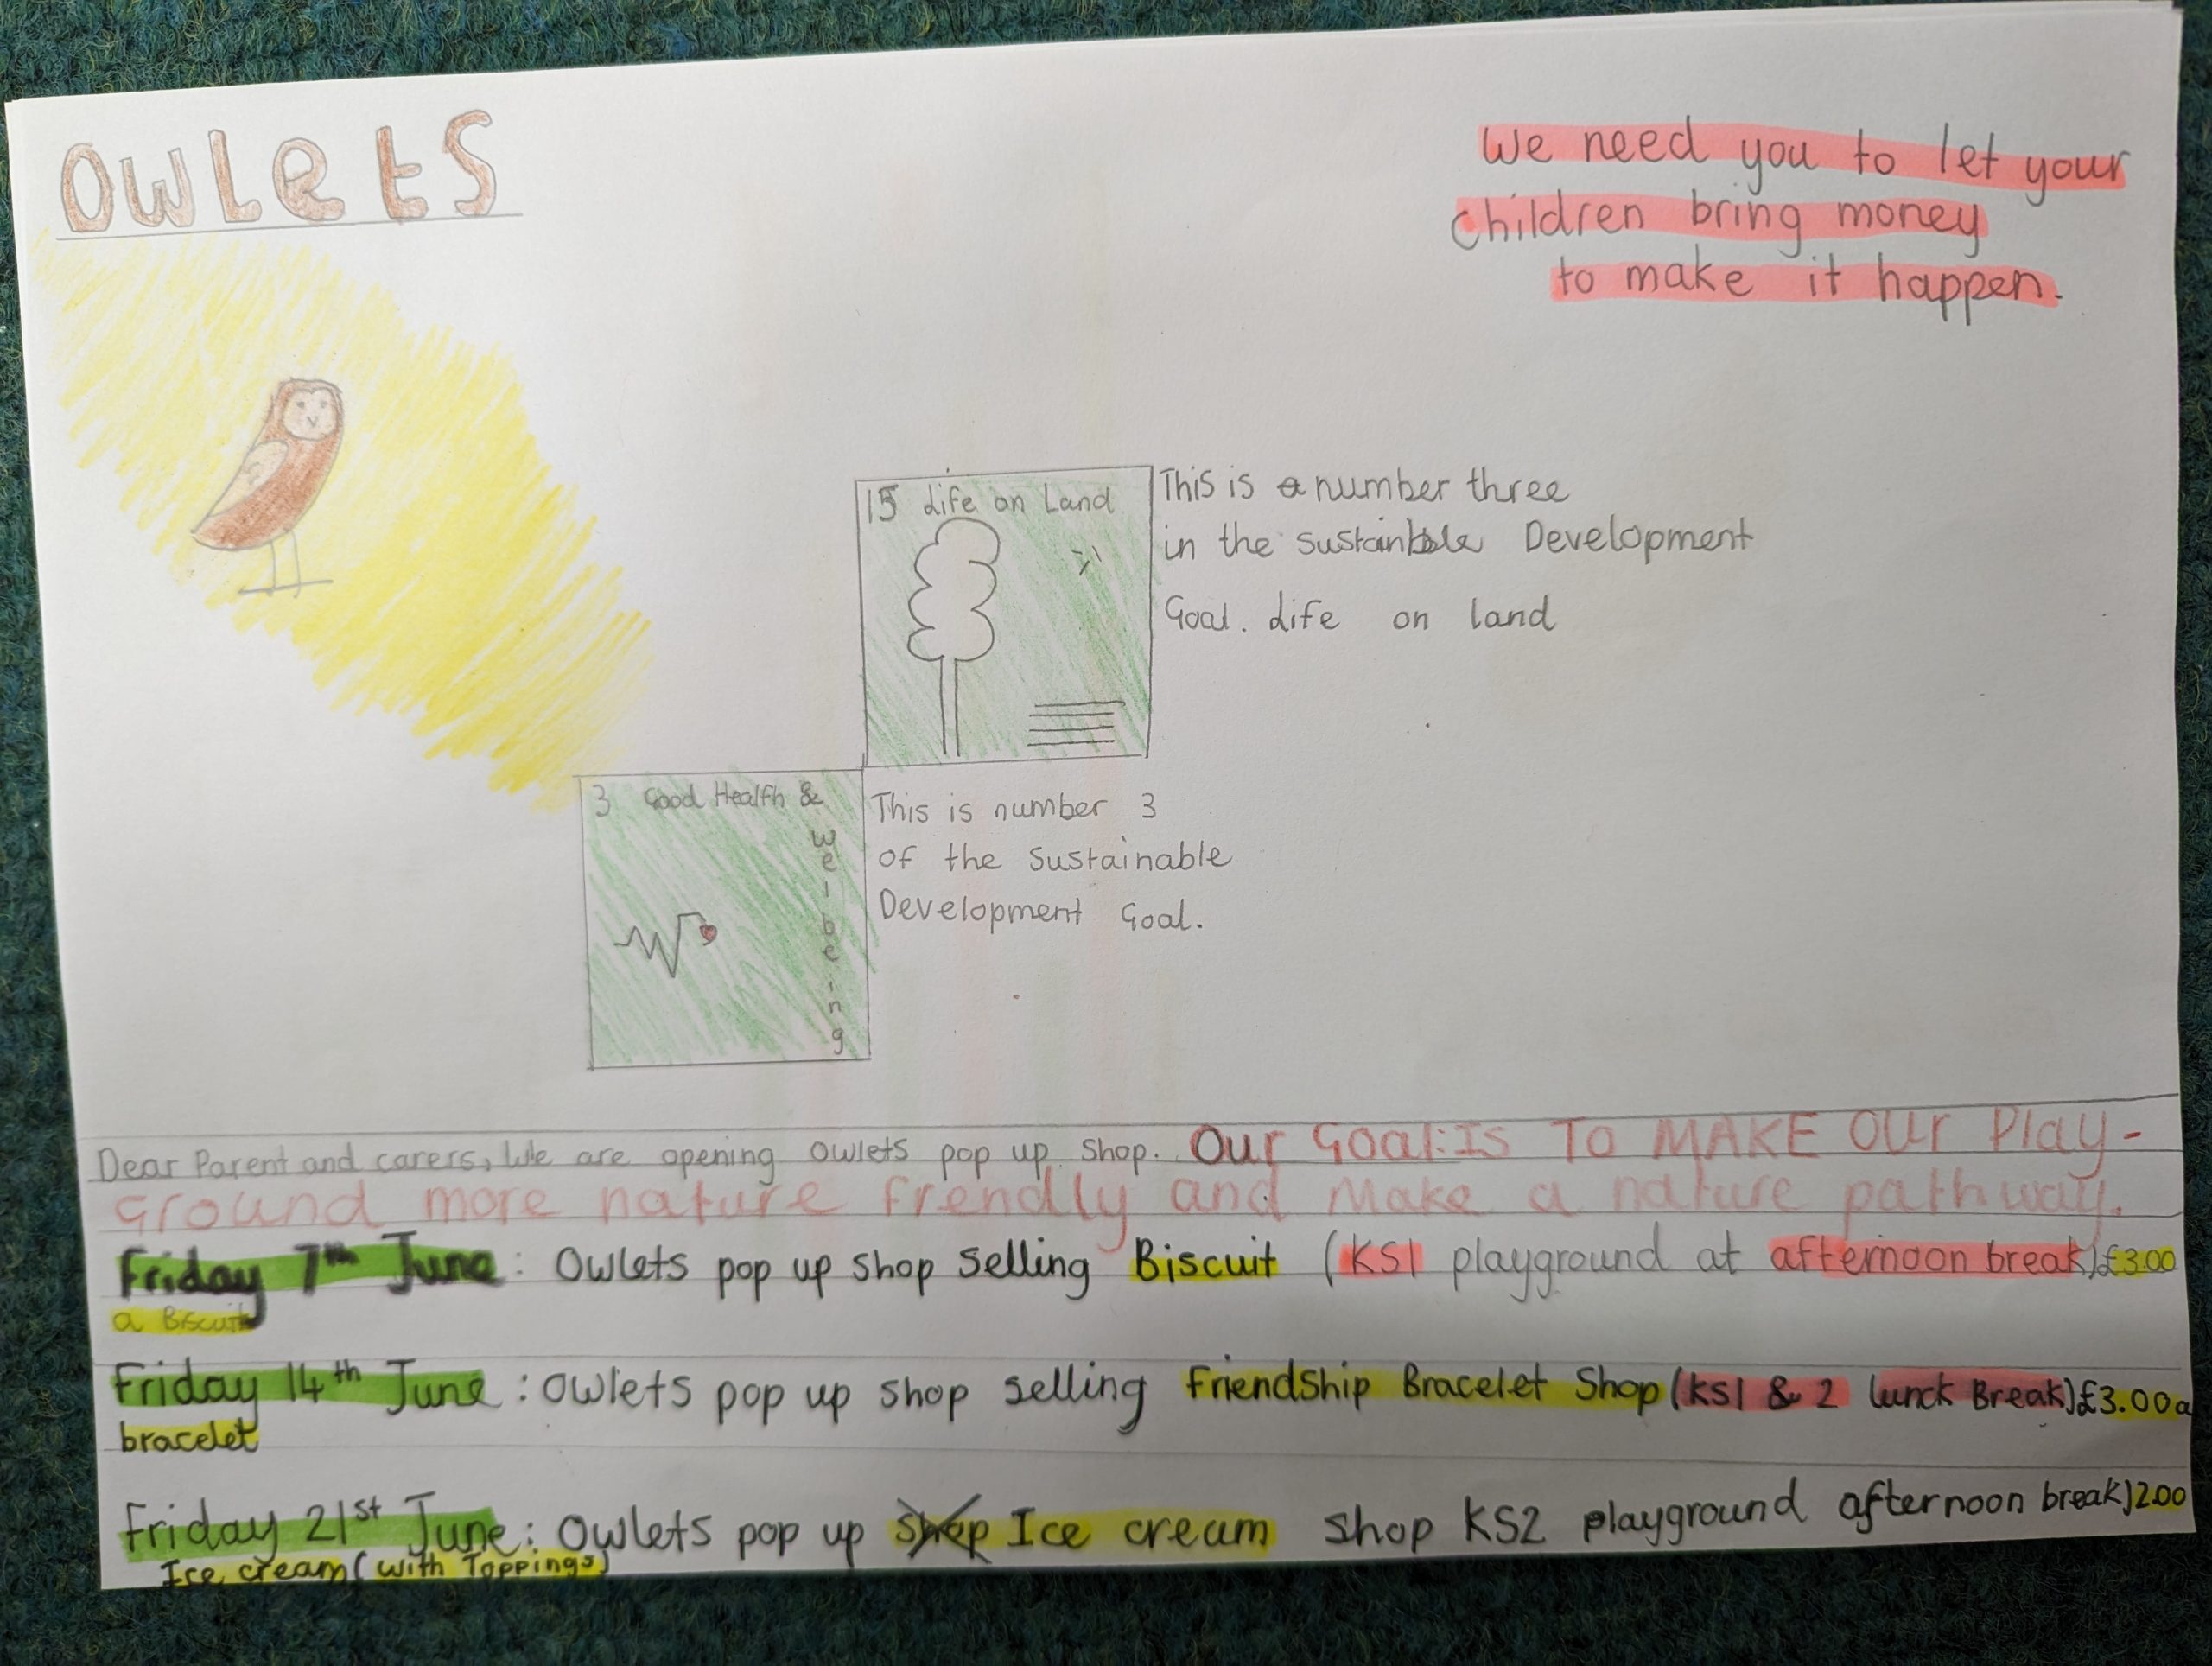 Owlets
We need you to let your
children bring money
to make it happen.
15 Life on Land
This is number three
in the sustainble Development
Goal. Life on land
3 Good Health &
Welbeing
This is number 3
of the Sustainable
Development Goal.
Dear Parent and carers, We are opening Owlets pop up Shop. Our Goal: Is To MAKE Our Play-
Ground more nature frendly and Make a nature pathway.
Friday 7th June: Owlets pop up shop selling Biscuit (KS1 playground at afternoon break) £3.00
a Biscuit
Friday 14th June: Owlets pop up shop selling Friendship Bracelet Shop (KS1 & 2 lunck Break) £3.00 a
bracelet
Friday 21st June: Owlets pop up shop Ice cream shop KS2 playground afternoon break) 2.00
Ice cream (with Toppings)